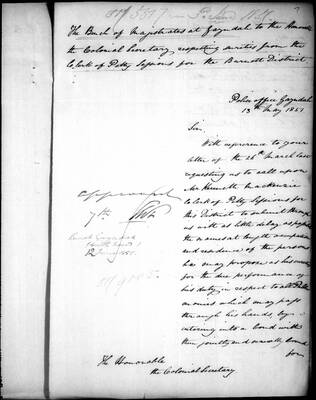 The Bench of Magistrates at Gayndah to the Honorable
the Colonial Secretary, respecting sureties from the
Clerk of Petty Sessions for the Burnett District
Police office Gayndah
13th May 1851
Sir,
With reference to your
letter of the 26th March last
requesting us to call upon
Mr Kenneth Mackenzie
Clerk of Petty Sessions for
this District to submit through
us with as little delay as possible
the names at length occupations
and residences of the persons
he may propose as his sureties
for the due performance of
his duty in respect to all Public
monies which may pass
through his hands, by
entering into a bond with
them jointly and severally bound
for
approved
7th
The Honorable
the Colonial Secretary